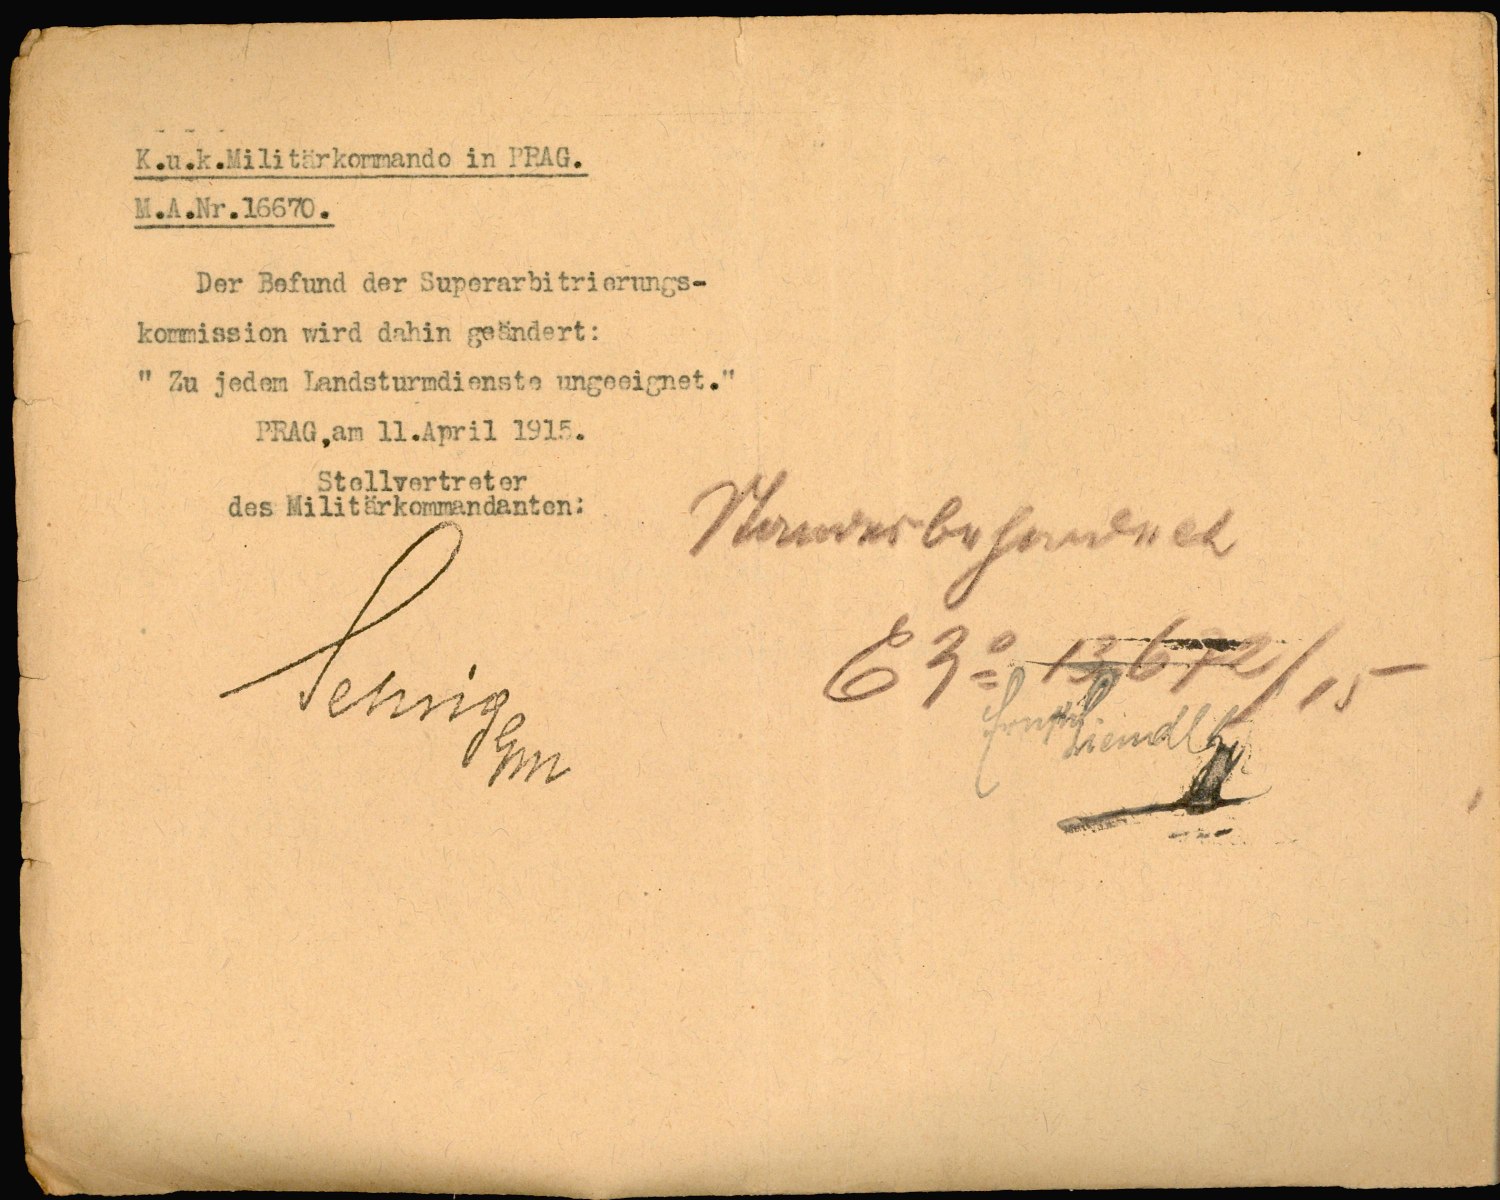 K.u.k.Militärkommando in PRAG.
M.A.Nr.16670.
Der Befund der Superarbitrierungs-
kommission wird dahin geändert:
" Zu jedem Landsturmdienste ungeeignet."
PRAG,am 11.April 1915.
Stellvertreter
des Militärkommandanten:
Standesbehandelt
E No 13672/15